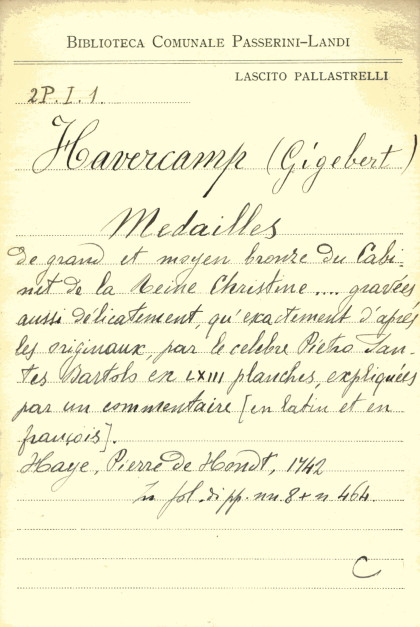 BIBLIOTECA COMUNALE PASSERINI-LANDI
LASCITO PALLASTRELLI
2P. I. 1.
Havercamp (Gigebert)
Medailles
de grand et moyen bronze du Cabi-
net de la Reine Christine .... gravées
aussi délicatement, qu'exactement d'après
les originaux, par le celebre Pietro San-
tes Bartolo en LXIII planches, expliquées
par un commentaire [en latin et en
françois].
Haye, Pierre de Hondt, 1742
In fol. di pp. nn. 8 + n. 464.
C